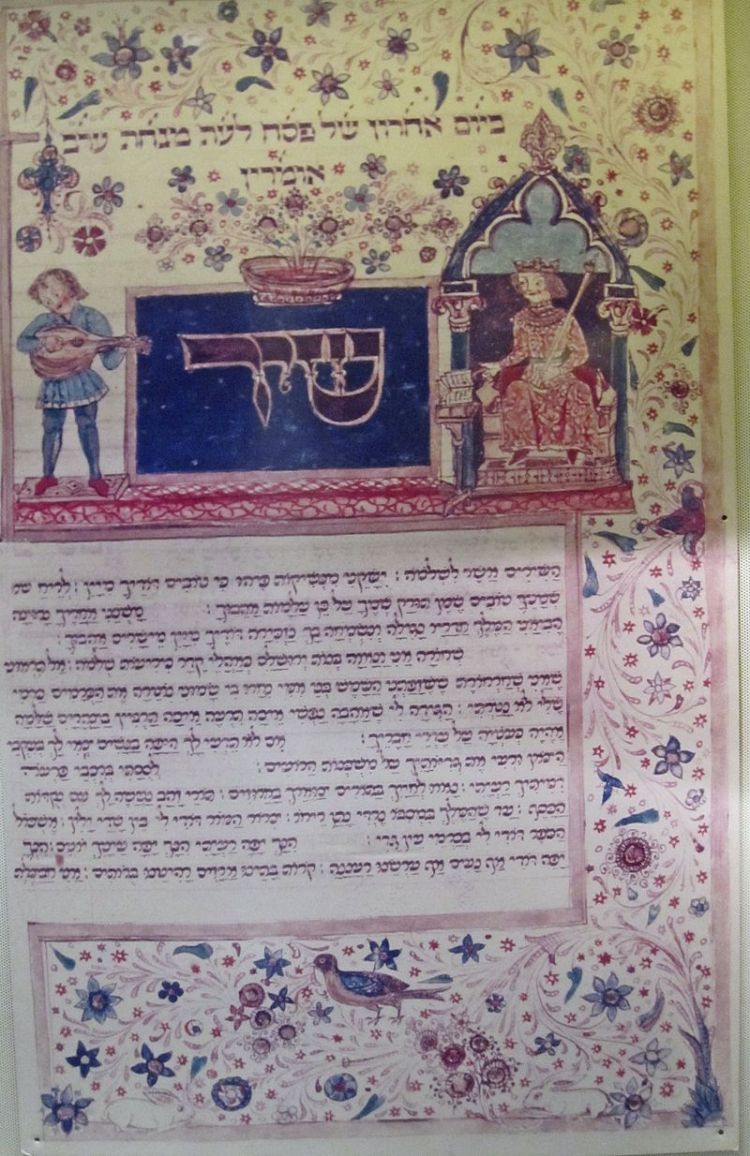 ביום אחרון של פסח לעת מנחת ערב
אומרין
שיר
השירים אשר לשלמה : ישקני מנשיקות פיהו כי טובים דודיך מיין : לריח שמ
שמניך טובים שמן תורק שמך על כן עלמות אהבוך : משכני אחריך נרוצה
הביאני המלך חדריו נגילה ונשמחה בך נזכירה דודיך מיין מישרים אהבוך :
שחורה אני ונאוה בנות ירושלם כאהלי קדר כיריעות שלמה : אל תראוני
שאני שחרחורת ששזפתני השמש בני אמי נחרו בי שמוני נוטרה את הכרמים כרמי
שלי לא נטרתי : הגידה לי שאהבה נפשי איכה תרעה איכה תרביץ בצהרים שלמה
אהיה כעטיה על עדרי חבריך : אם לא תדעי לך היפה בנשים צאי לך בעקבי
הצאן ורעי את גדיותיך על משכנות הרועים : לסוסתי ברכבי פרעה
דמיתיך רעיתי : נאוו לחייך בתורים צוארך בחרוזים : תורי זהב נעשה לך עם נקדות
הכסף : עד שהמלך במסבו נרדי נתן ריחו : צרור המור דודי לי בין שדי ילין : אשכול
הכפר דודי לי בכרמי עין גדי : הנך יפה רעיתי הנך יפה עיניך יונים : הנך
יפה דודי אף נעים אף ערשנו רעננה : קורות בתינו ארזים רהיטנו ברותים : אני חבצלת